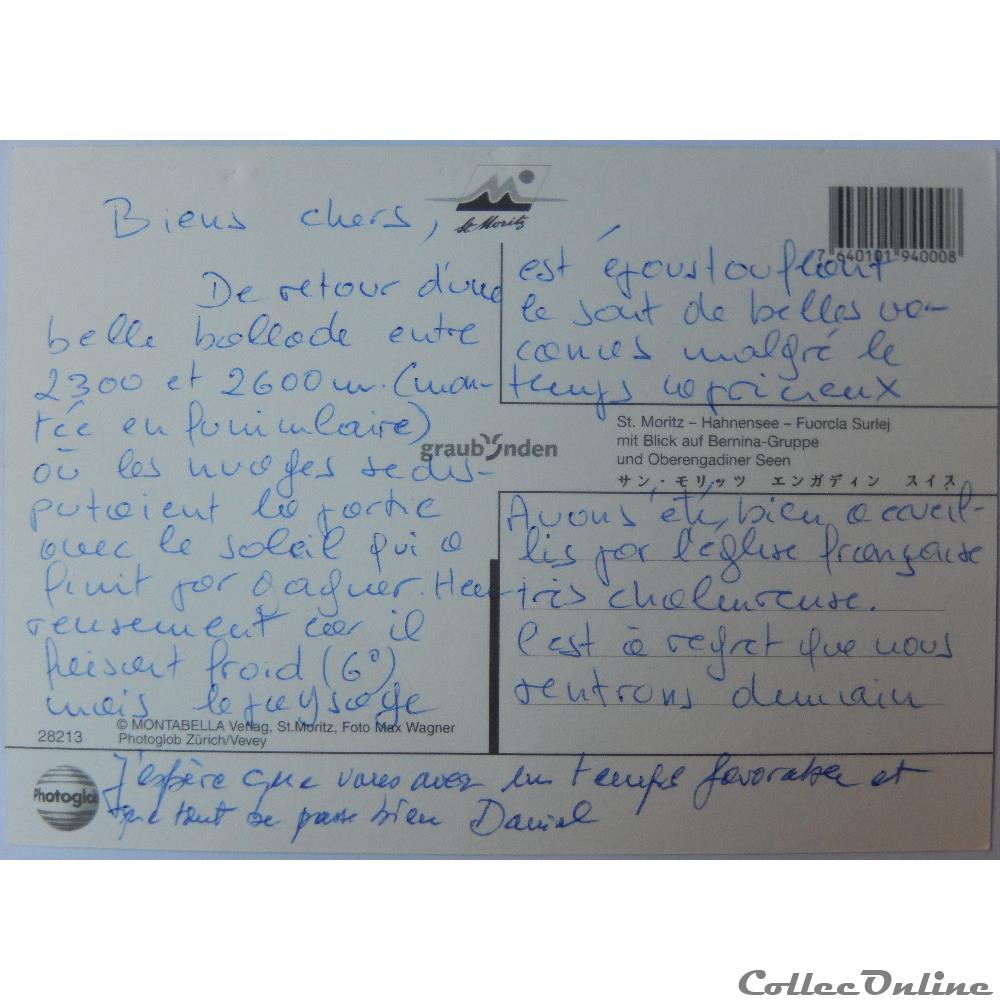 St. Moritz
7 640101 940008
Biens chers,
De retour d'une
belle ballade entre
2300 et 2600 m. (mon-
tée en funiculaire)
où les nuages se dis-
putaient la partie
avec le soleil qui a
finit par gagner. Heu-
reusement car il
faisait froid (6°)
mais le paysage
est époustouflant
ce sont de belles va-
cances malgré le
temps capricieux
graubünden
St. Moritz – Hahnensee – Fuorcla Surlej
mit Blick auf Bernina-Gruppe
und Oberengadiner Seen
サン・モリッツ エンガディン スイス
Avons été bien accueil-
lis par l'église française
très chaleureuse.
C'est à regret que nous
rentrons demain
28213
© MONTABELLA Verlag, St.Moritz, Foto Max Wagner
Photoglob Zürich/Vevey
Photoglob
J'espère que vous avez un temps favorable et
que tout se passe bien Daniel
CollecOnline